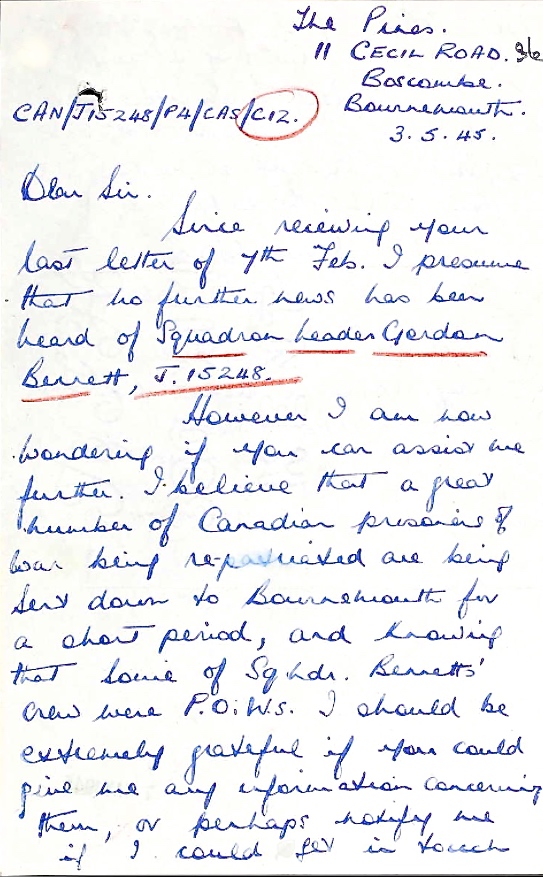 The Pines.
11 CECIL ROAD. 36
Boscombe.
Bournemouth.
3.5.45.
CAN/J15248/P4/CAS/C12.
Dear Sir.
Since receiving your
last letter of 7th Feb. I presume
that no further news has been
heard of Squadron Leader Gordon
Bennett, J.15248.
However I am now
wondering if you can assist me
further. I believe that a great
number of Canadian prisoners of
war being re-patriated are being
sent down to Bournemouth for
a short period, and knowing
that some of Sq. Ldr. Bennetts'
crew were P.O.W.s. I should be
extremely grateful if you could
give me any information concerning
them, or perhaps notify me
if I could get in touch